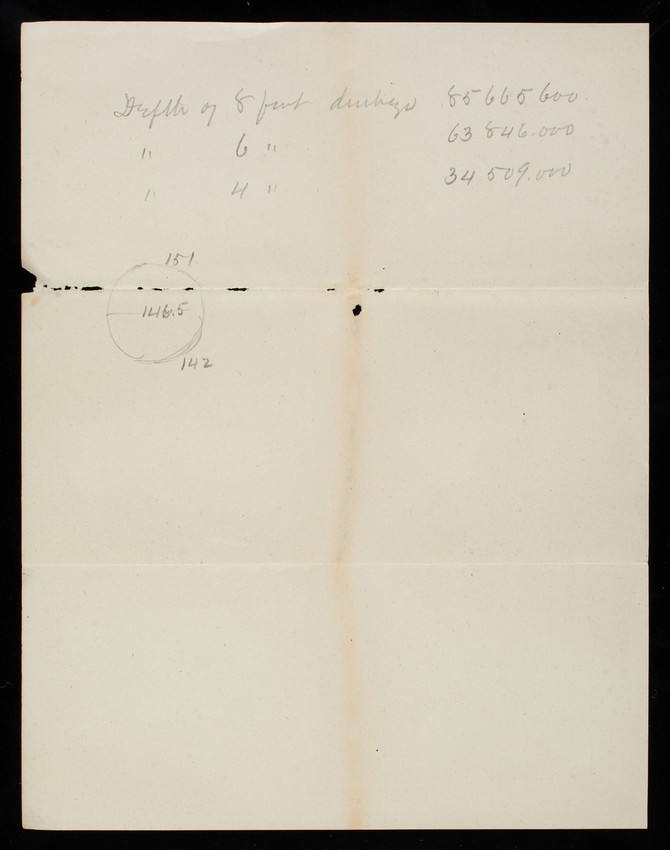 Depth of 8 feet discharge 85665600
" 6 " 63 846.000
" 4 " 34 509.000
151.
146.5
142